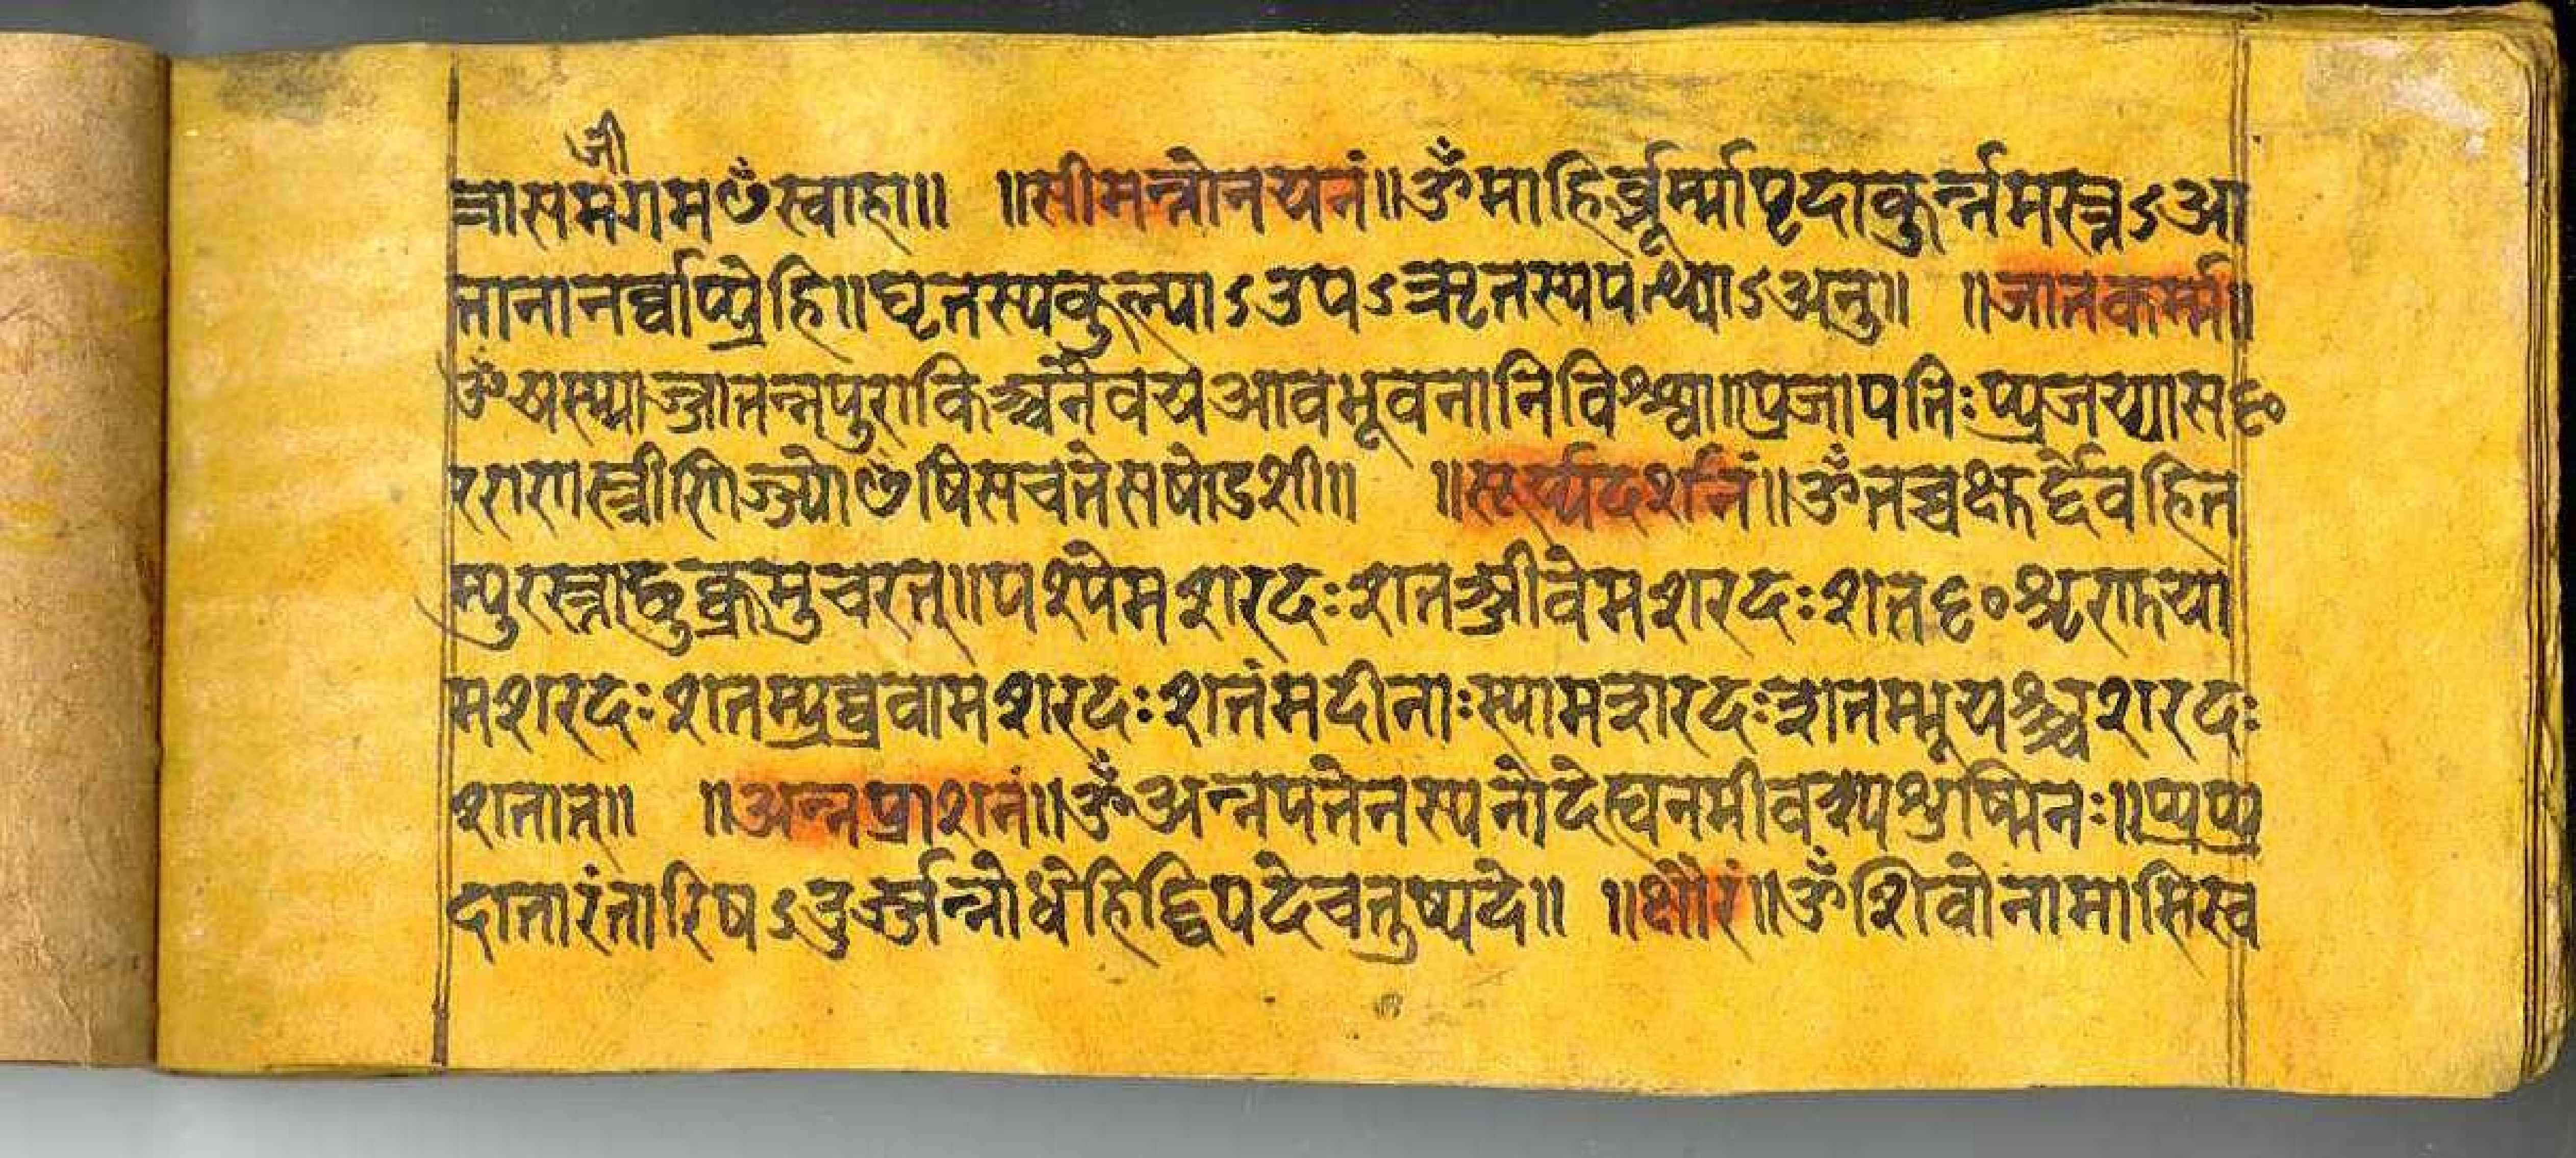 जी
न्नासमगमꣳस्वाहा॥ ॥सीमन्तोनयनं॥ॐमाहिर्ब्भूर्म्मापृदाकुर्न्नमस्तऽआ
तानानर्व्वाप्प्रेहि॥घृतस्यकुल्याऽउपऽऋतस्यपत्थ्याऽअनु॥ ॥जातकर्म्म॥
ॐयस्म्माज्जातन्नपुराकिञ्चनैवयआवभूवनानिविश्श्वा॥प्रजापतिःप्प्रजय्यासꣳ
रराणस्त्रीणिज्ज्योꣳषिसचतेसषोडशी॥ ॥सूर्य्यदर्शनं॥ॐतच्चक्षुर्द्देवहित
म्पुरस्ताछुक्क्रमुचरत्॥पश्येमशरदःशतञ्जीवेमशरदःशतꣳशृणुया
मशरदःशतम्प्रब्ब्रवामशरदःशतंमदीनाःस्यामशरदःशतम्भूयश्च्चशरदः
शतात्॥ ॥अन्नप्राशनं॥ॐअन्नपतेनस्यनोदेह्यनमीवस्यशुष्मिनः॥प्प्रप्प्र
दातारंतारिषऽउर्ज्जन्नोधेहिद्विपदेचतुष्पदे॥ ॥क्षौरं॥ॐशिवोनामासिस्व